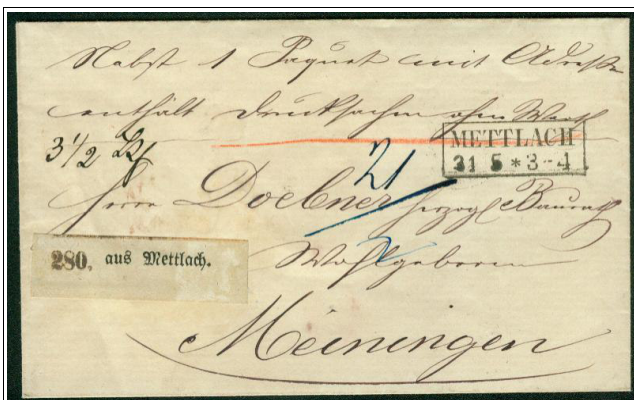 Nebst 1 Paquet mit Adresse
enthält Drucksachen ohne Werth
METTLACH
31 5 * 3-4
3 1/2
21
Herrn Doebner herzogl Baurath
280. aus Mettlach.
Wohlgeboren
Meiningen